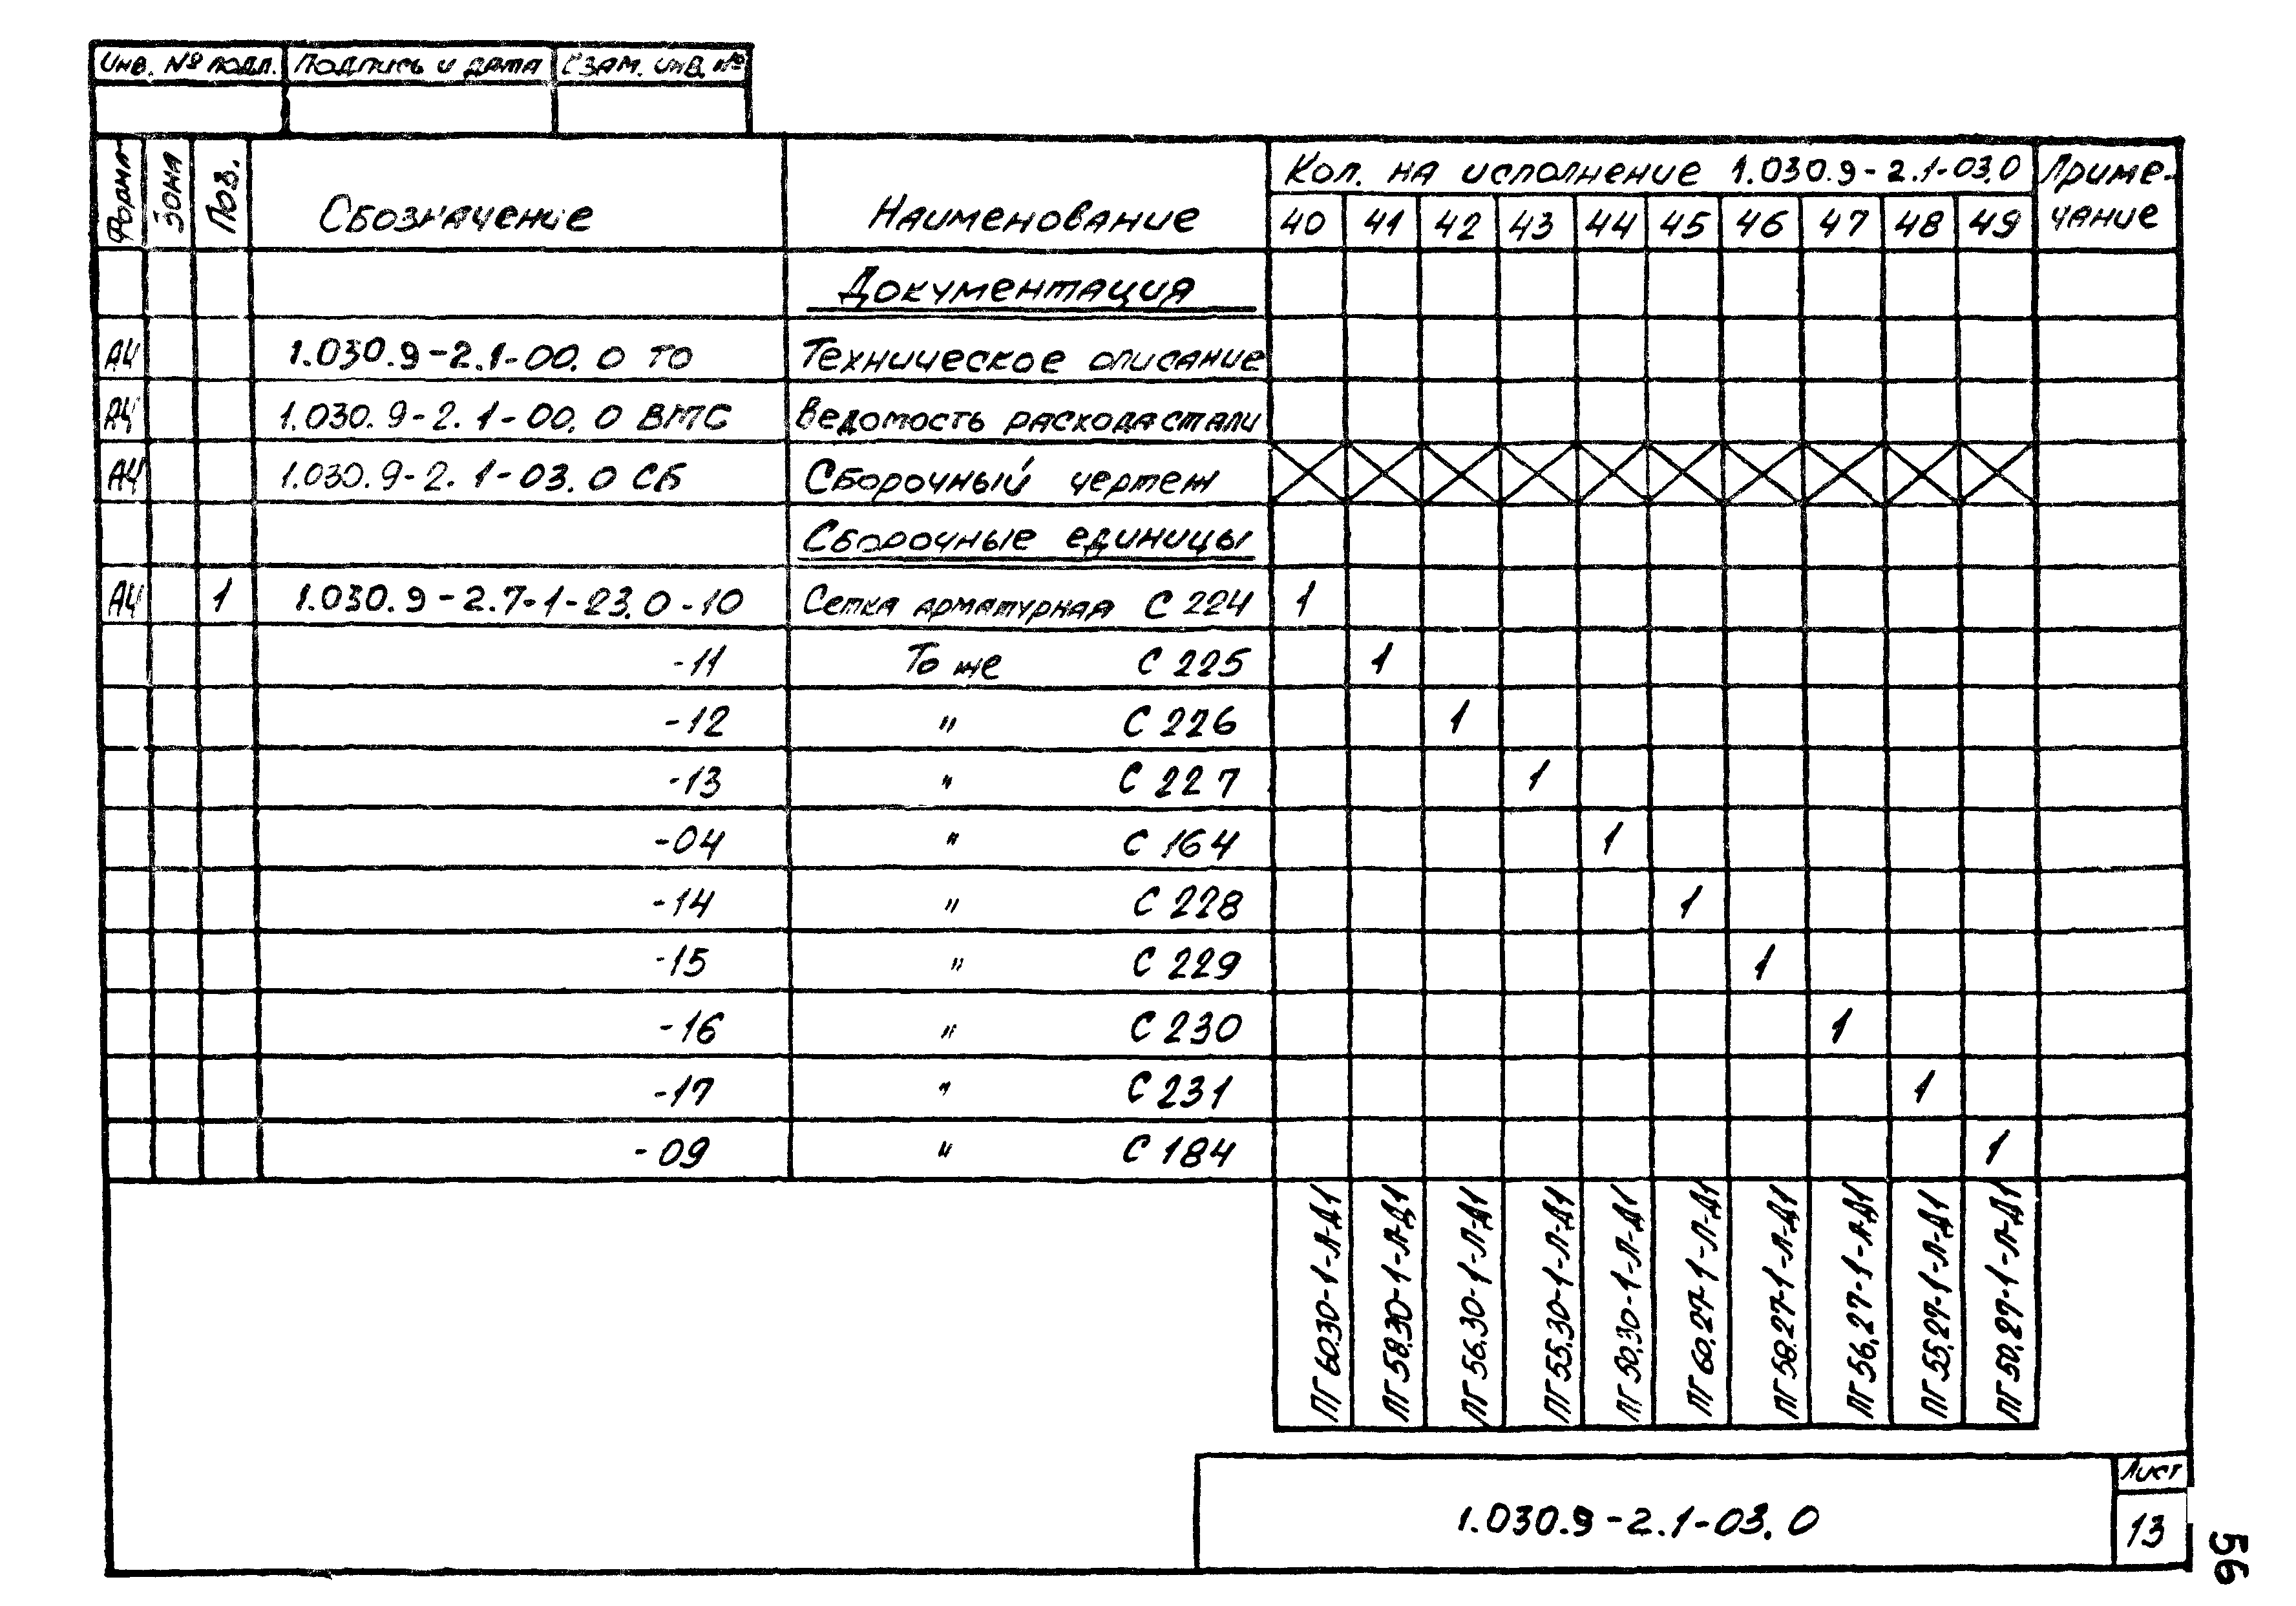 Инв. № подл. Подпись и дата Взам. инв. №
Формат Зона Поз. Обозначение Наименование Кол. на исполнение 1.030.9-2.1-03.0 Приме-
40 41 42 43 44 45 46 47 48 49 чание
Документация
А4 1.030.9-2.1-00.0 ТО Техническое описание
А4 1.030.9-2.1-00.0 ВМС Ведомость расхода стали
А4 1.030.9-2.1-03.0 СБ Сборочный чертеж
Сборочные единицы
А4 1 1.030.9-2.7-1-23.0-10 Сетка арматурная С 224 1
-11 То же С 225 1
-12 " С 226 1
-13 " С 227 1
-04 " С 164 1
-14 " С 228 1
-15 " С 229 1
-16 " С 230 1
-17 " С 231 1
-09 " С 184 1
ПГ 60.30-1-Л-Д1
ПГ 58.30-1-Л-Д1
ПГ 56.30-1-Л-Д1
ПГ 55.30-1-Л-Д1
ПГ 50.30-1-Л-Д1
ПГ 60.27-1-Л-Д1
ПГ 58.27-1-Л-Д1
ПГ 56.27-1-Л-Д1
ПГ 55.27-1-Л-Д1
ПГ 50.27-1-Л-Д1
1.030.9-2.1-03.0
Лист
13
56